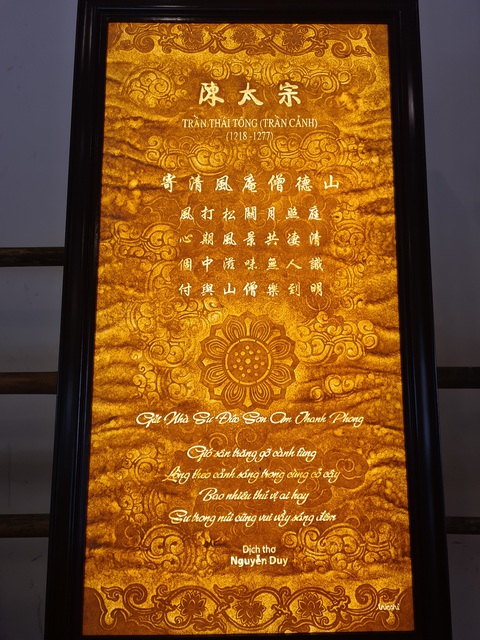 陳太宗
TRẦN THÁI TÔNG (TRẦN CẢNH)
(1218 -1277)
寄清風庵僧德山
風打松關月照庭
心期風景共淒清
個中滋味無人識
付與山僧樂到明
Gửi Nhà Sư Đức Sơn Am Thanh Phong
Gió sân trăng gõ cành tùng
Lòng theo cảnh sáng trong cùng cỏ cây
Bao nhiêu thú vị ai hay
Sư trong núi cũng vui vầy sáng đêm
Dịch thơ
Nguyễn Duy